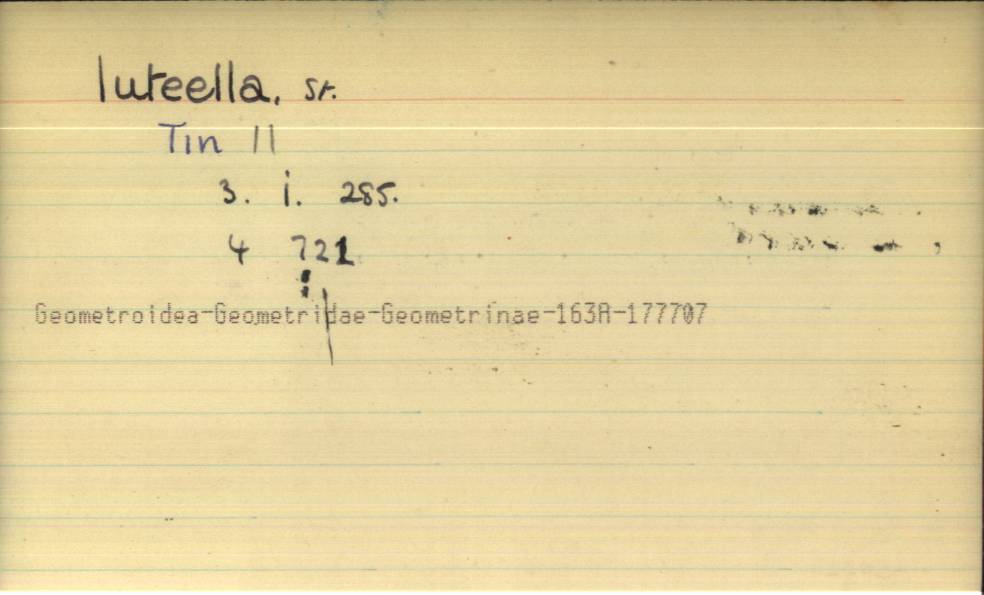 luteella, St.
Tin 11
3. i. 285.
4 721
Geometroidea-Geometridae-Geometrinae-163A-177707